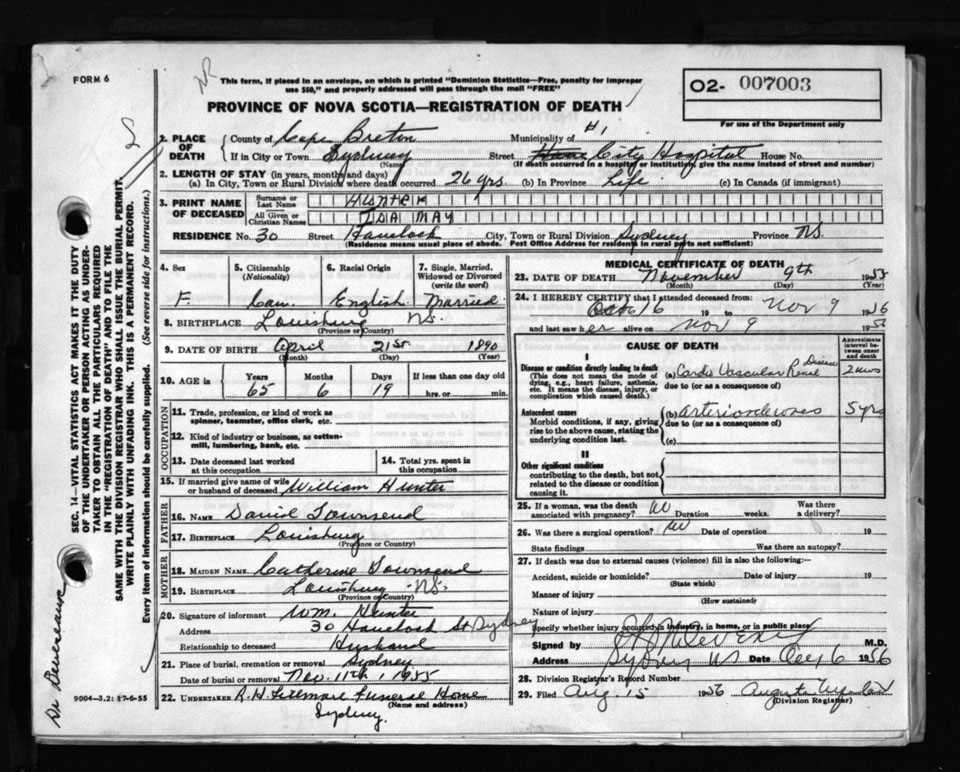 FORM 6
This form, if placed in an envelope, on which is printed "Dominion Statistics—Free, penalty for improper
use $50," and properly addressed will pass through the mail "FREE"
PROVINCE OF NOVA SCOTIA—REGISTRATION OF DEATH
O2- 007003
For use of the Department only
1. PLACE OF DEATH County of Cape Breton Municipality of
If in City or Town Sydney Street City Hospital House No.
(Name) (If death occurred in a hospital or institution, give the name instead of street and number)
2. LENGTH OF STAY (in years, months and days)
(a) In City, Town or Rural Division where death occurred 26 yrs. (b) In Province Life (c) In Canada (if immigrant)
3. PRINT NAME OF DECEASED Surname or Last Name HUNTER
All Given or Christian Names IDA MAY
RESIDENCE No. 30 Street Havelock City, Town or Rural Division Sydney Province N.S.
(Residence means usual place of abode. Post Office Address for residents in rural parts not sufficient)
4. Sex 5. Citizenship (Nationality) 6. Racial Origin 7. Single, Married, Widowed or Divorced (write the word)
F. Can. English Married
8. BIRTHPLACE Louisburg N.S.
(Province or Country)
9. DATE OF BIRTH April 21st 1890
(Month) (Day) (Year)
10. AGE in Years Months Days If less than one day old
65 6 19 hrs. or min.
OCCUPATION
11. Trade, profession, or kind of work as
spinner, teamster, office clerk, etc.
12. Kind of industry or business, as cotton-
mill, lumbering, bank, etc.
13. Date deceased last worked at this occupation 14. Total yrs. spent in this occupation
15. If married give name of wife
or husband of deceased William Hunter
FATHER
16. NAME David Townsend
17. BIRTHPLACE Louisburg
(Province or Country)
MOTHER
18. MAIDEN NAME Catherine Townsend
19. BIRTHPLACE Louisburg N.S.
(Province or Country)
20. Signature of informant Wm. Hunter
Address 30 Havelock St Sydney
Relationship to deceased Husband
21. Place of burial, cremation or removal Sydney
Date of burial or removal Nov. 11th, 1955
22. UNDERTAKER R.H. Fillmore Funeral Home
(Name and address)
Sydney.
MEDICAL CERTIFICATE OF DEATH
23. DATE OF DEATH November 9th 1955
(Month) (Day) (Year)
24. I HEREBY CERTIFY that I attended deceased from:
Oct 16 19 to Nov 9 19
and last saw her alive on Nov 9 19
CAUSE OF DEATH
Approximate interval between onset and death
I
Disease or condition directly leading to death (a) Cardio Vascular Renal Disease
(This does not mean the mode of
dying, e.g., heart failure, asthenia,
etc. It means the disease, injury, or
complication which caused death.)
due to (or as a consequence of)
Antecedent causes (b) arteriosclerosis 5 yrs
Morbid conditions, if any, giving
rise to the above cause, stating the
underlying condition last.
due to (or as a consequence of)
(c)
II
Other significant conditions
contributing to the death, but not
related to the disease or condition
causing it.
25. If a woman, was the death
associated with pregnancy? no Duration weeks. Was there
a delivery?
26. Was there a surgical operation? no Date of operation 19
State findings Was there an autopsy?
27. If death was due to external causes (violence) fill in also the following:
Accident, suicide or homicide? Date of injury 19
(State which)
Manner of injury
(How sustained)
Nature of injury
Specify whether injury occurred in industry, in home, or in public place
Signed by M.D.
Address Sydney NS Date 6 1956
28. Division Registrar's Record Number
29. Filed Aug. 15 1956
(Division Registrar)
SEC. 14—VITAL STATISTICS ACT MAKES IT THE DUTY
OF THE UNDERTAKER OR PERSON ACTING AS UNDER-
TAKER TO OBTAIN ALL THE PARTICULARS REQUIRED
IN THE "REGISTRATION OF DEATH" AND TO FILE THE
SAME WITH THE DIVISION REGISTRAR WHO SHALL ISSUE THE BURIAL PERMIT.
WRITE PLAINLY WITH UNFADING INK. THIS IS A PERMANENT RECORD.
Every item of information should be carefully supplied. (See reverse side for instructions.)
9004—3.2: 17-6-55